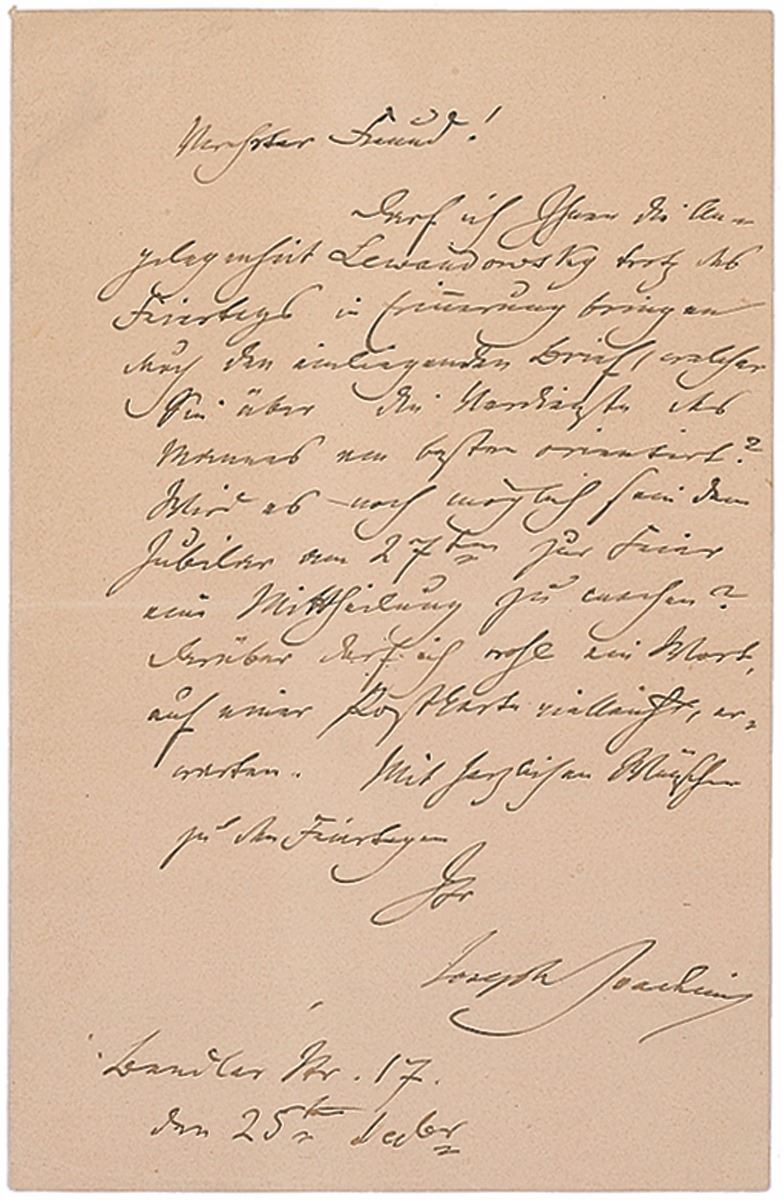 Verehrter Freund!
Darf ich Ihnen die An-
gelegenheit Lewandowsky trotz des
Feiertags in Erinnerung bringen
durch den einliegenden Brief, welcher
Sie über die Verdienste des
Mannes am besten orientirt?
Wird es noch möglich sein dem
Jubilar am 27ten zur Feier
eine Mittheilung zu machen?
Darüber darf ich wohl ein Wort,
auf einer Postkarte vielleicht, er-
warten. Mit herzlichen Wünschen
zu den Feiertagen
Ihr
Joseph Joachim
Bendler Str. 17.
den 25ten Decbr